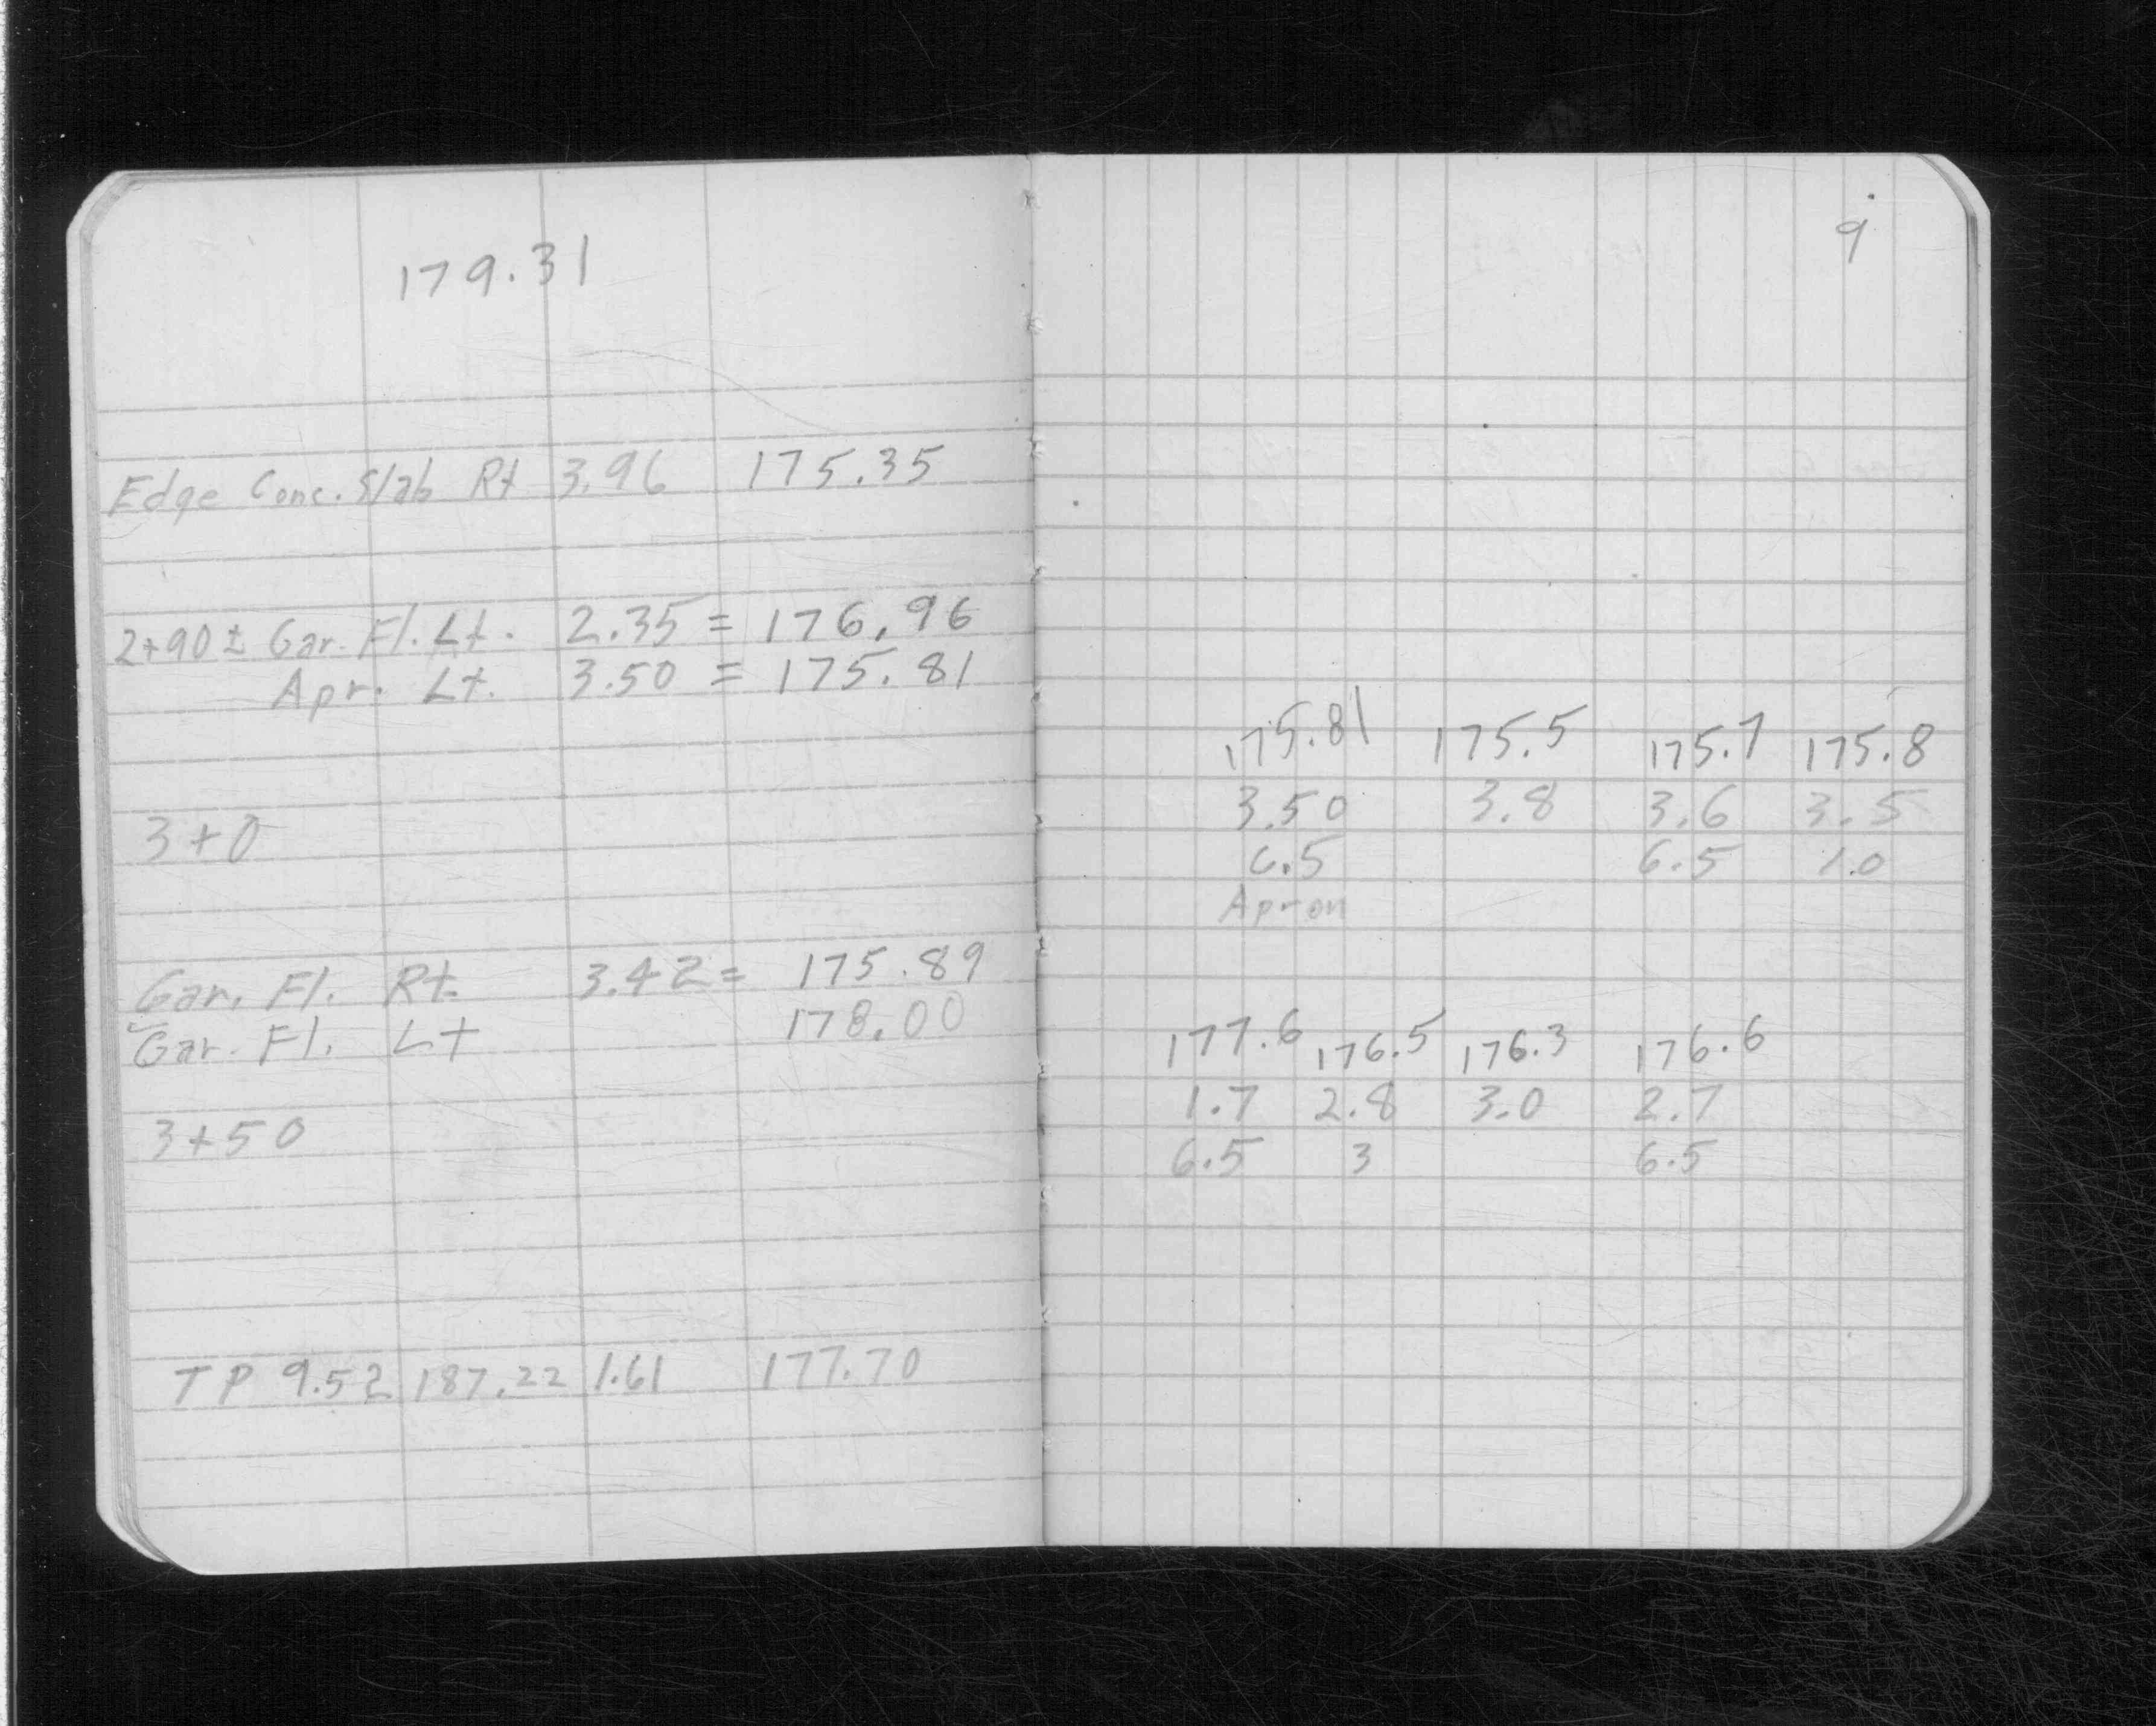 179.31
Edge Conc. Slab Rt 3.96 175.35
2+90± Gar. Fl. Lt. 2.35 = 176.96
Apr. Lt. 3.50 = 175.81
3+0
Gar. Fl. Rt. 3.42 = 175.89
Gar. Fl. Lt 178.00
3+50
TP 9.52 187.22 1.61 177.70
9
175.81 175.5 175.7 175.8
3.50 3.8 3.6 3.5
6.5 6.5 1.0
Apron
177.6 176.5 176.3 176.6
1.7 2.8 3.0 2.7
6.5 3 6.5